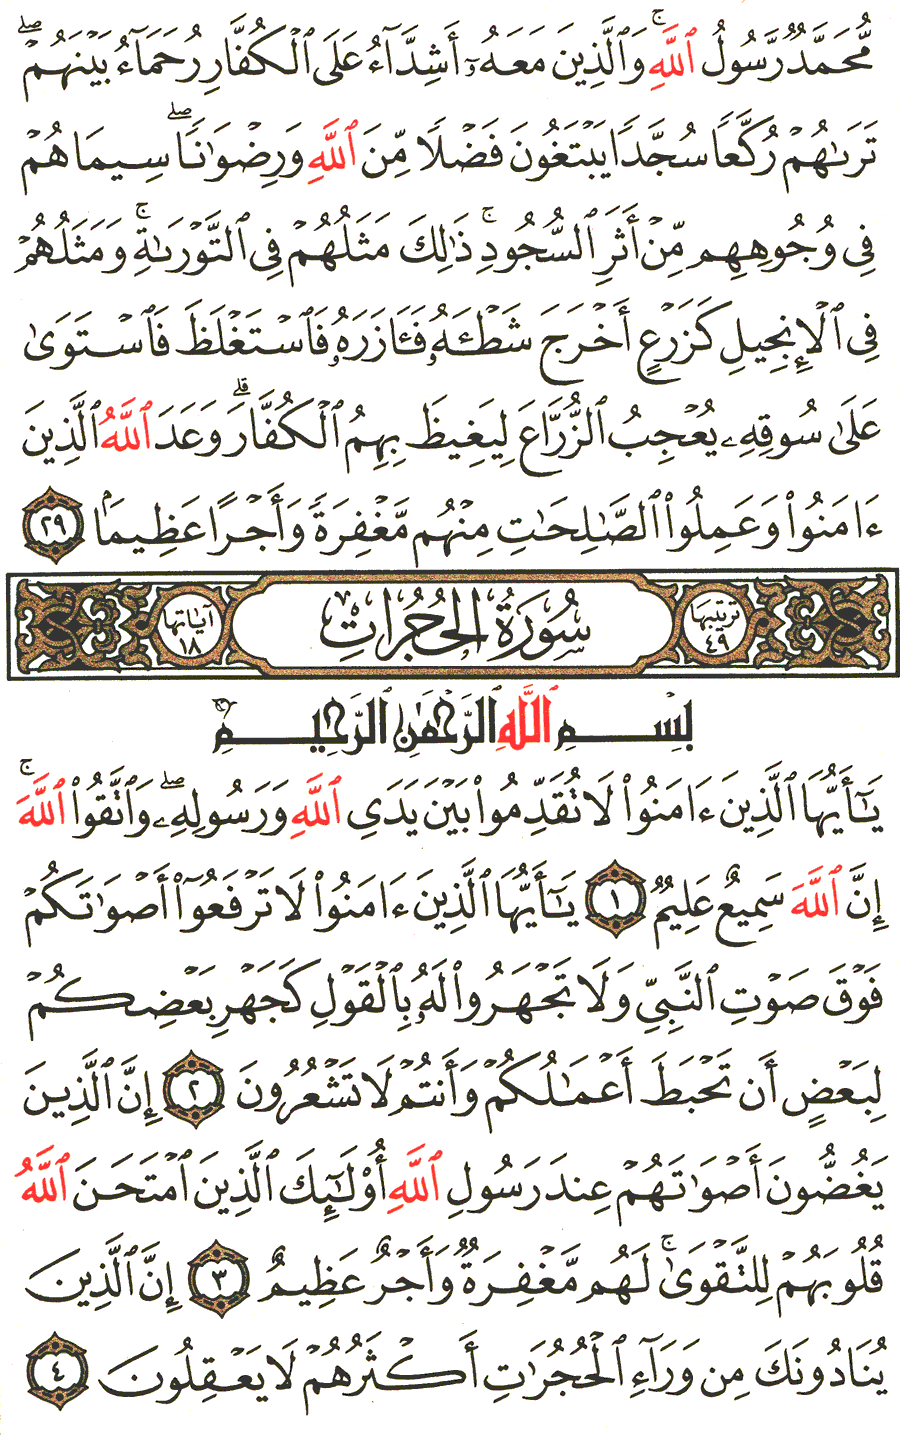 مُّحَمَّدٌ رَّسُولُ ٱللَّهِ ۚ وَٱلَّذِينَ مَعَهُۥٓ أَشِدَّآءُ عَلَى ٱلْكُفَّارِ رُحَمَآءُ بَيْنَهُمْ ۖ
تَرَىٰهُمْ رُكَّعًا سُجَّدًا يَبْتَغُونَ فَضْلًا مِّنَ ٱللَّهِ وَرِضْوَٰنًا ۖ سِيمَاهُمْ
فِى وُجُوهِهِم مِّنْ أَثَرِ ٱلسُّجُودِ ۚ ذَٰلِكَ مَثَلُهُمْ فِى ٱلتَّوْرَىٰةِ ۚ وَمَثَلُهُمْ
فِى ٱلْإِنجِيلِ كَزَرْعٍ أَخْرَجَ شَطْـَٔهُۥ فَـَٔازَرَهُۥ فَٱسْتَغْلَظَ فَٱسْتَوَىٰ
عَلَىٰ سُوقِهِۦ يُعْجِبُ ٱلزُّرَّاعَ لِيَغِيظَ بِهِمُ ٱلْكُفَّارَ ۗ وَعَدَ ٱللَّهُ ٱلَّذِينَ
ءَامَنُوا۟ وَعَمِلُوا۟ ٱلصَّـٰلِحَـٰتِ مِنْهُم مَّغْفِرَةً وَأَجْرًا عَظِيمًۢا ٢٩
ترتيبها ٤٩ سُورَةُ الحُجُرَاتِ آياتها ١٨
بِسْمِ ٱللَّهِ ٱلرَّحْمَـٰنِ ٱلرَّحِيمِ
يَـٰٓأَيُّهَا ٱلَّذِينَ ءَامَنُوا۟ لَا تُقَدِّمُوا۟ بَيْنَ يَدَىِ ٱللَّهِ وَرَسُولِهِۦ ۖ وَٱتَّقُوا۟ ٱللَّهَ ۚ
إِنَّ ٱللَّهَ سَمِيعٌ عَلِيمٌ ١ يَـٰٓأَيُّهَا ٱلَّذِينَ ءَامَنُوا۟ لَا تَرْفَعُوٓا۟ أَصْوَٰتَكُمْ
فَوْقَ صَوْتِ ٱلنَّبِىِّ وَلَا تَجْهَرُوا۟ لَهُۥ بِٱلْقَوْلِ كَجَهْرِ بَعْضِكُمْ
لِبَعْضٍ أَن تَحْبَطَ أَعْمَـٰلُكُمْ وَأَنتُمْ لَا تَشْعُرُونَ ٢ إِنَّ ٱلَّذِينَ
يَغُضُّونَ أَصْوَٰتَهُمْ عِندَ رَسُولِ ٱللَّهِ أُو۟لَـٰٓئِكَ ٱلَّذِينَ ٱمْتَحَنَ ٱللَّهُ
قُلُوبَهُمْ لِلتَّقْوَىٰ ۚ لَهُم مَّغْفِرَةٌ وَأَجْرٌ عَظِيمٌ ٣ إِنَّ ٱلَّذِينَ
يُنَادُونَكَ مِن وَرَآءِ ٱلْحُجُرَٰتِ أَكْثَرُهُمْ لَا يَعْقِلُونَ ٤